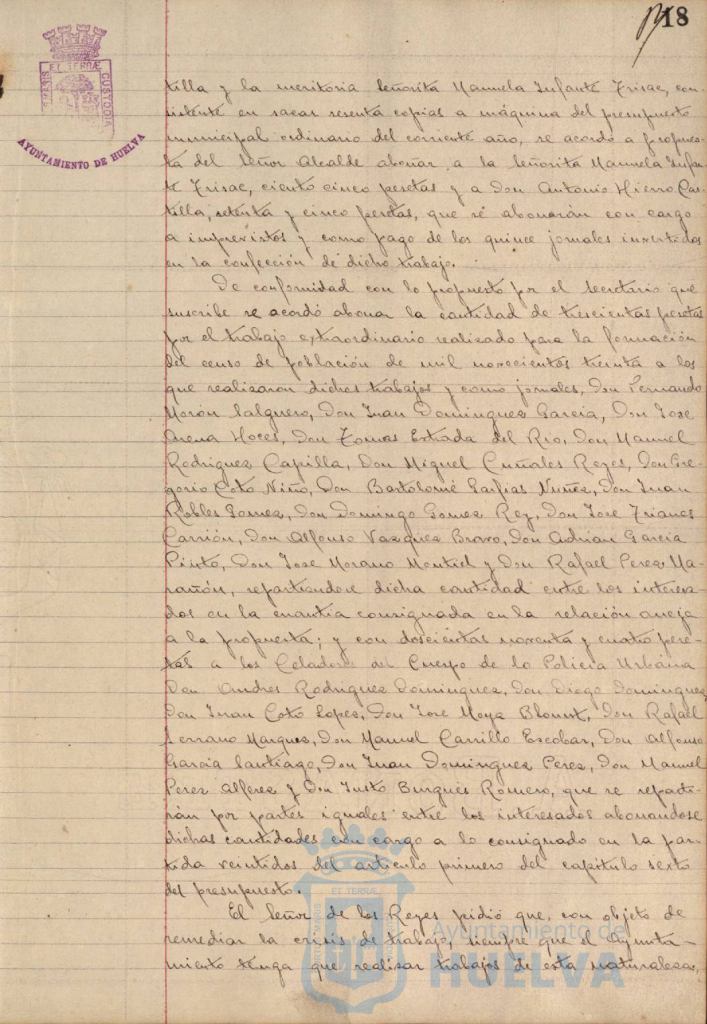 18
ET TERRÆ CUSTODIA
AYUNTAMIENTO DE HUELVA
tilla y la meritoria Señorita Manuela Infante Frisac, con-
sistente en sacar sesenta copias a máquina del presupuesto
municipal ordinario del corriente año, se acordó a propues-
ta del Señor Alcalde abonar a la Señorita Manuela Infan-
te Frisac, ciento cinco pesetas y a Don Antonio Hierro Cas-
tilla, setenta y cinco pesetas, que se abonarán con cargo
a imprevistos y como pago de los quince jornales invertidos
en la confección de dicho trabajo.
De conformidad con lo propuesto por el Secretario que
suscribe se acordó abonar la cantidad de trescientas pesetas
por el trabajo extraordinario realizado para la formación
del censo de población de mil novecientos treinta a los
que realizaron dichos trabajos y como jornales, Don Fernando
Morón Salguero, Don Juan Dominguez Garcia, Don Jose
Arena Hoces, Don Tomas Estrada del Rio, Don Manuel
Rodriguez Capilla, Don Miguel Cuñales Reyes, Don Gre-
gorio Coto Niño, Don Bartolomé Garfias Nuñez, Don Juan
Robles Gomez, Don Domingo Gomez Rey, Don Jose Trianes
Carrión, Don Alfonso Vazquez Bravo, Don Adrian Garcia
Pinto, Don Jose Morano Montiel y Don Rafael Perez Ma-
rañón, repartiendose dicha cantidad entre los interesa-
dos en la cuantia consignada en la relación aneja
a la propuesta; y con doscientas noventa y cuatro pese-
tas a los Celadores del Cuerpo de la Policia Urbana
Don Andres Rodriguez Dominguez, Don Diego Dominguez,
Don Juan Coto Lopez, Don Jose Moya Blount, Don Rafael
Serrano Marquez, Don Manuel Carrillo Escobar, Don Alfonso
Garcia Santiago, Don Juan Dominguez Perez, Don Manuel
Perez Alferez y Don Justo Burgues Romero, que se reparti-
rán por partes iguales entre los interesados abonandose
dichas cantidades con cargo a lo consignado en la par-
tida veintidos del articulo primero del capitulo sexto
del presupuesto.
El Señor de los Reyes pidió que, con objeto de
remediar la crisis de trabajo, siempre que el Ayunta-
miento tenga que realizar trabajos de esta naturaleza,
ET TERRÆ
Ayuntamiento de
HUELVA